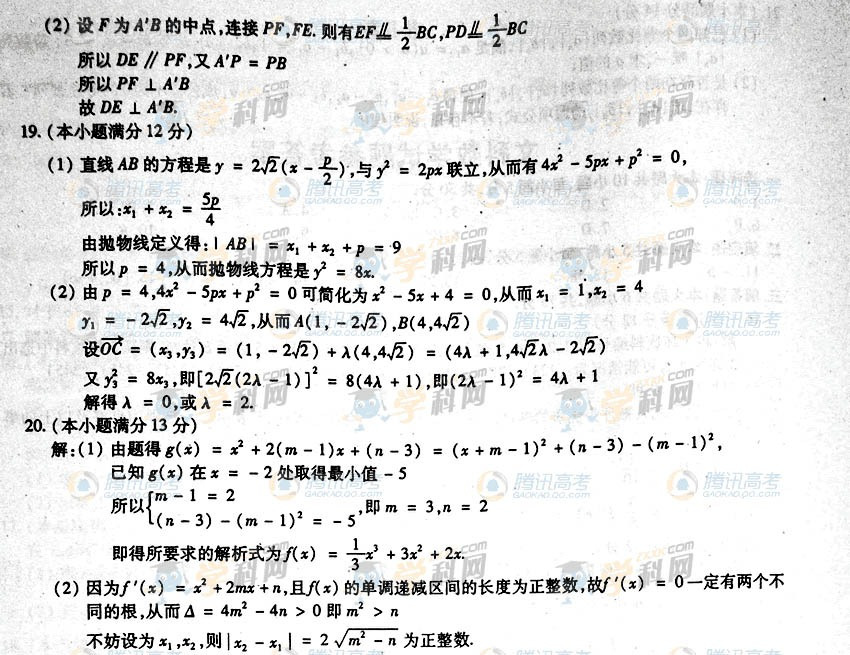 (2) 设 F 为 A'B 的中点,连接 PF,FE. 则有EF∥= 1/2 BC,PD∥= 1/2 BC
所以 DE ∥ PF,又 A'P = PB
所以 PF ⊥ A'B
故 DE ⊥ A'B.
19. (本小题满分 12 分)
(1) 直线 AB 的方程是 y = 2√2(x - p/2),与 y² = 2px 联立,从而有 4x² - 5px + p² = 0,
所以:x₁ + x₂ = 5p/4
由抛物线定义得:| AB | = x₁ + x₂ + p = 9
所以 p = 4,从而抛物线方程是 y² = 8x.
(2) 由 p = 4,4x² - 5px + p² = 0 可简化为 x² - 5x + 4 = 0,从而 x₁ = 1,x₂ = 4
y₁ = - 2√2,y₂ = 4√2,从而 A(1, - 2√2),B(4,4√2)
设OC→ = (x₃,y₃) = (1, - 2√2) + λ(4,4√2) = (4λ + 1,4√2λ - 2√2)
又 y₃² = 8x₃,即[2√2(2λ - 1)]² = 8(4λ + 1),即(2λ - 1)² = 4λ + 1
解得 λ = 0,或 λ = 2.
20. (本小题满分 13 分)
解:(1) 由题得 g(x) = x² + 2(m - 1)x + (n - 3) = (x + m - 1)² + (n - 3) - (m - 1)²,
已知 g(x) 在 x = - 2 处取得最小值 - 5
所以{m - 1 = 2
(n - 3) - (m - 1)² = - 5 ,即 m = 3,n = 2
即得所要求的解析式为 f(x) = 1/3 x³ + 3x² + 2x.
(2) 因为 f '(x) = x² + 2mx + n,且 f(x) 的单调递减区间的长度为正整数,故 f '(x) = 0 一定有两个不
同的根,从而 Δ = 4m² - 4n > 0 即 m² > n
不妨设为 x₁,x₂,则 | x₂ - x₁ | = 2 √(m² - n) 为正整数.